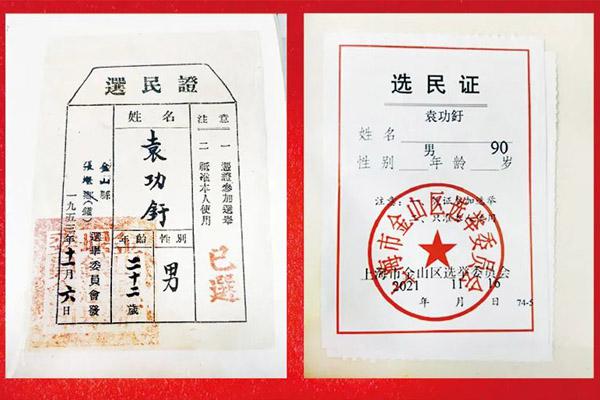 選民證
注意
一 憑證參加選舉
二 祇准本人使用
已選
姓名
袁功釪
性別 男
年齡 二十二歲
金山縣
張堰(鎮)
選舉委員會發
一九五三年十一月六日
选民证
袁功釪
姓名
男 90
性别 年龄 岁
注意：证参加选举
上海市金山区选举委员会
上海市金山区选举委员会
2021 11 16
年 月 日
74-5